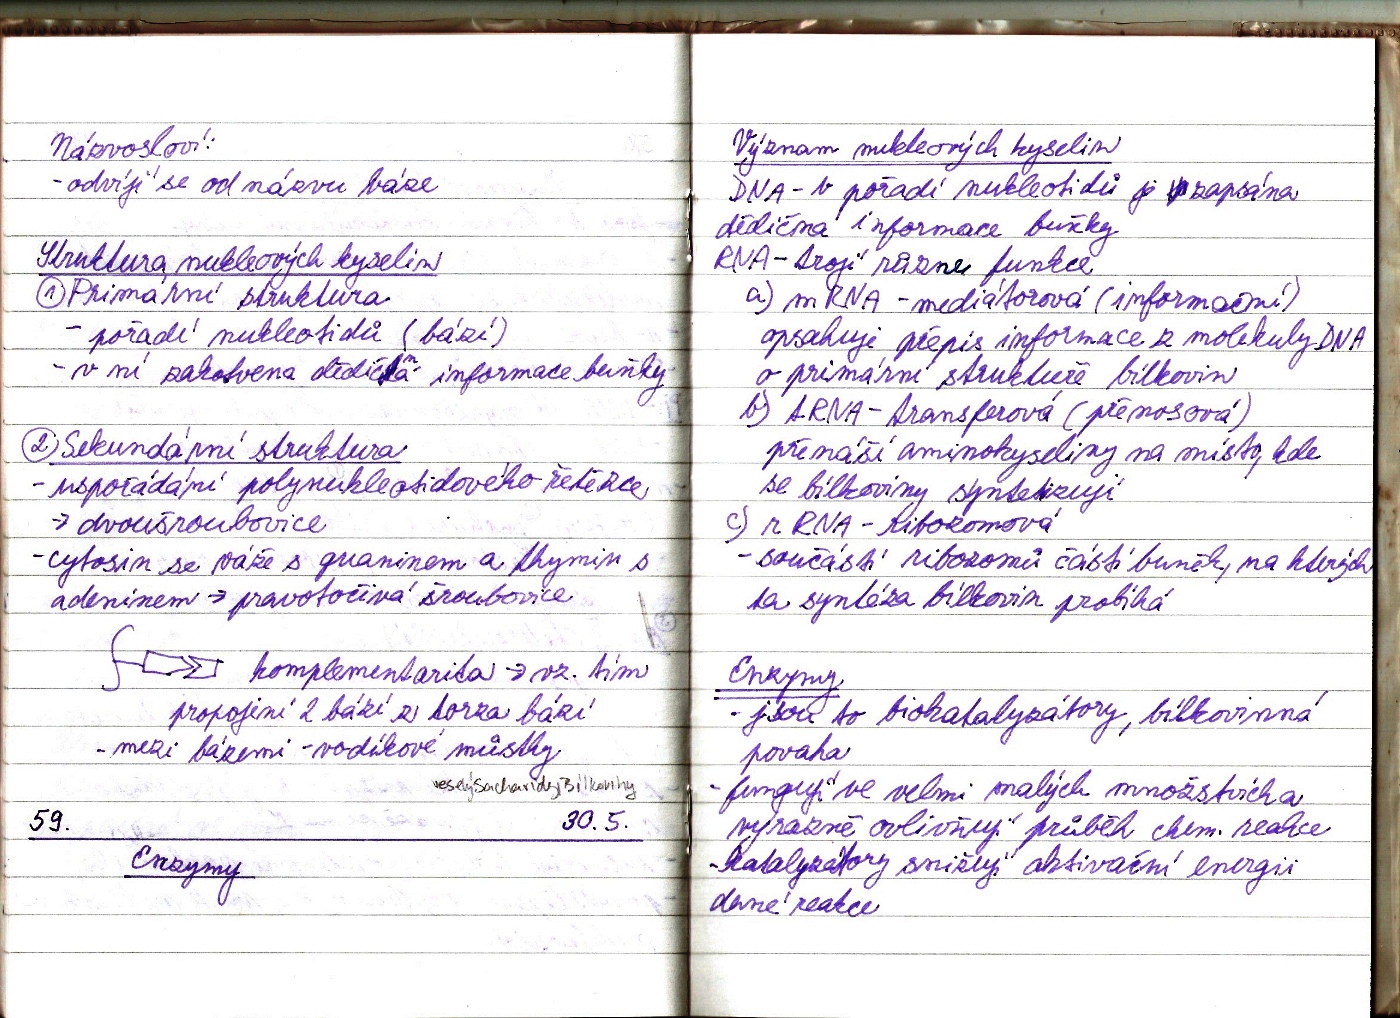 Názvosloví:
- odvíjí se od názvu báze
Struktura nukleových kyselin
① Primární struktura
- pořadí nukleotidů (bází)
- v ní zakotvena dědičná informace buňky
② Sekundární struktura
- uspořádání polynukleotidového řetězce
→ dvoušroubovice
- cytosin se váže s guaninem a thymin s
adeninem → pravotočivá šroubovice
komplementarita → vz. tím
propojení 2 bází z torza bází
- mezi bázemi - vodíkové můstky
veselý Sacharidy, Bílkoviny
59. 30. 5.
Enzymy
Význam nukleových kyselin
DNA - v pořadí nukleotidů je zapsána
dědična informace buňky
RNA - trojí různe funkce
a) mRNA - mediátorová (informační)
opsahuje přepis informace z molekuly DNA
o primární struktuře bílkovin
b) tRNA - transferová (přenosová)
přenáší aminokyseliny na místy kde
se bílkoviny syntetizují
c) rRNA - ribozomová
- součástí ribozomů částí buněk, na kterých
ta syntéza bílkovin probíhá
Enzymy
- jsou to biokatalyzátory, bílkovinná
povaha
- fungují ve velmi malých množstvích a
výrazně ovlivňují průběh chem. reakce
- katalyzátory snižují aktivační energii
dané reakce